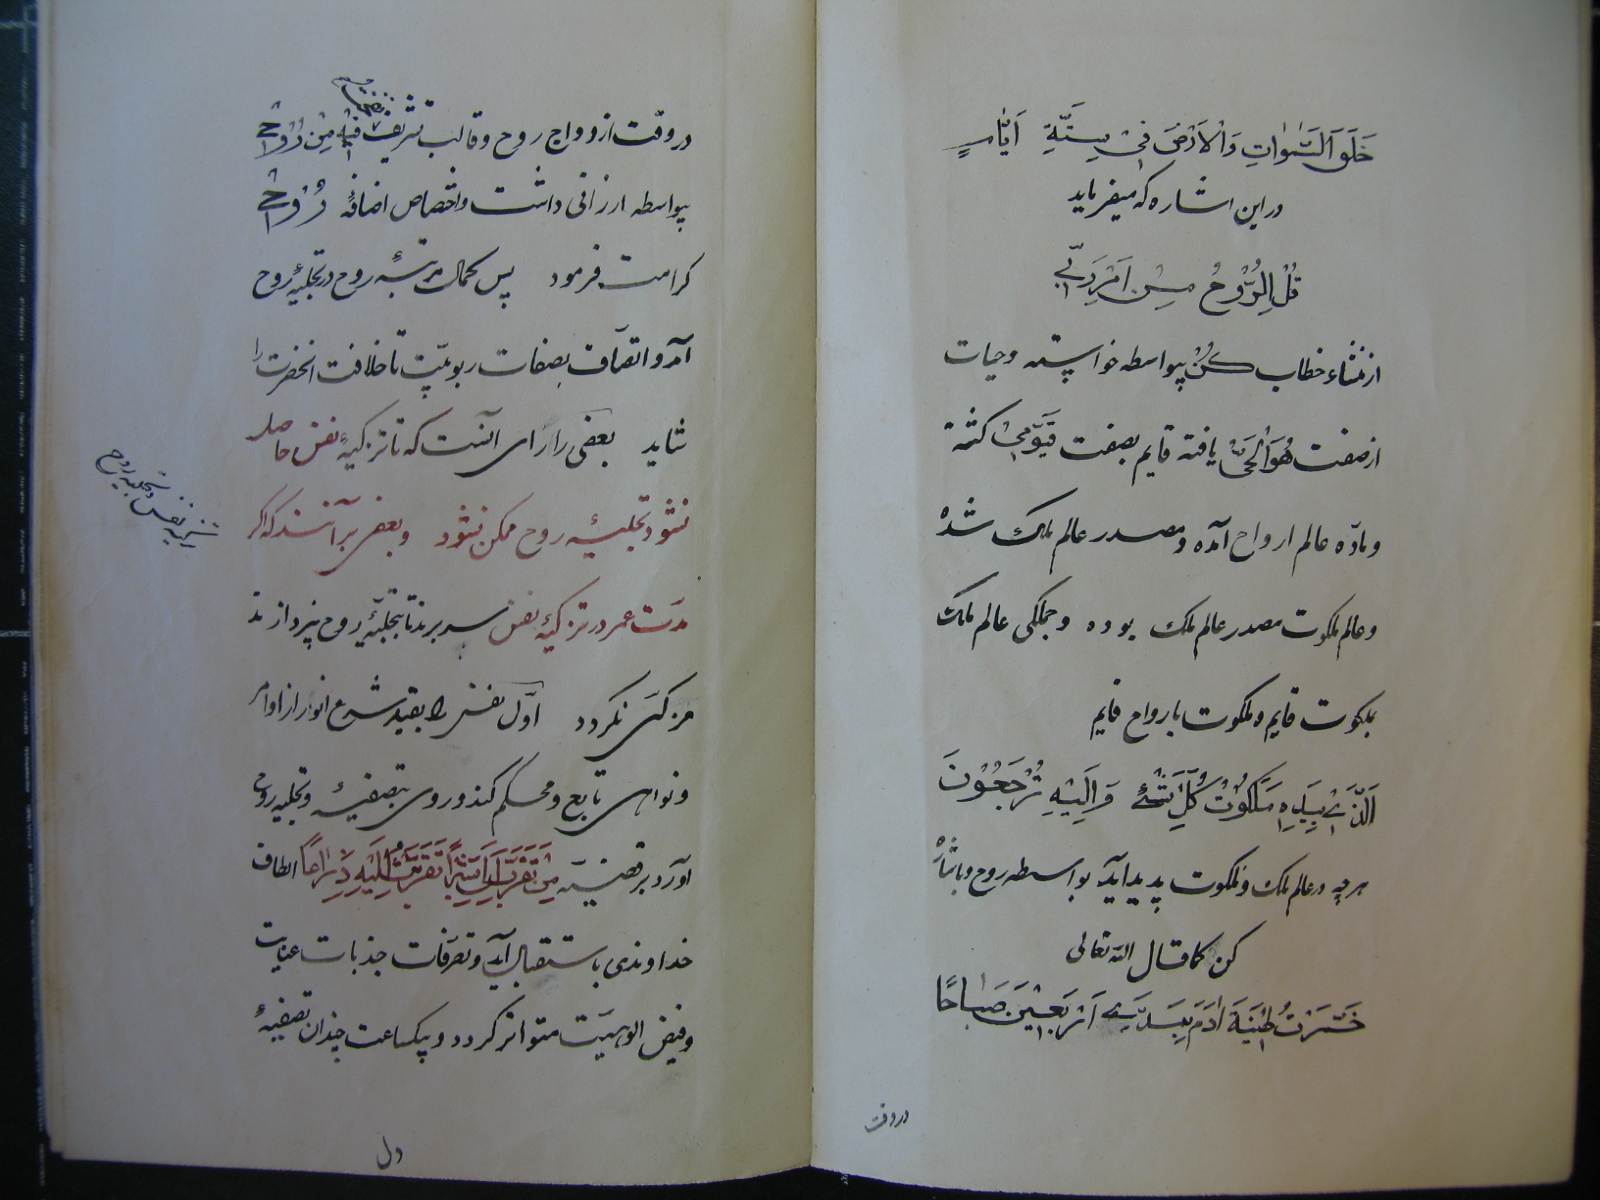 خَلَقَ السَّمٰوٰاتِ وَالْاَرْضَ فی سِتَّةِ اَیّٰامٍ
در این اشاره که میفرماید
قُلِ الرُّوْحُ مِنْ اَمْرِ رَبّی
از منشاء خطاب کُنْ بیواسطه خواسته وحیات
ازصفت هُوَ الْحَیُّ یافته قایم بصفت قَیّومی کشته
ومادّه عالم ارواح آمده ومصدر عالم ملک شده
وعالم ملکوت مصدر عالم ملک بوده وجملکی عالم ملک
بملکوت قایم وملکوت بارواح قایم
اَلَّذی بِیَدِهِ مَلَکُوْتُ کُلِّ شَیْئٍ وَ اِلَیْهِ تُرْجَعُوْنَ
هرچه در عالم ملک وملکوت پدید آید بواسطه روح وباشاره
کن کماقال اللّه تعالی
خَمَّرْتُ طینَةَ اٰدَمَ بِیَدَیَّ اَرْبَعینَ صَبٰاحًا
در وقت
در وقت ازدواج روح وقالب تشریف نفخت فیه مِنْ رُوْحی
بیواسطه ارزانی داشت واختصاص اضافهٔ رُوْحی
کرامت فرمود پس کمال مرتبهٔ روح در تجلیهٔ روح
آمد واتصاف بصفات ربوبیّت تا خلافت انحضرت را
شاید بعضی را رای آنست که تا تزکیهٔ نفس حاصل
نشود تجلیهٔ روح ممکن نشود وبعضی برآنند که اکر
مدّت عمر در تزکیهٔ نفس سر برند تا بتجلیهٔ روح نپردازند
مزکّی نکردد اوّل نفس را بقید شرع انوار از اوامر
ونواهی تابع ومحکم کند وروی بتصفیهٔ وتجلیهٔ روح
آورد برقضیّهٔ مَنْ تَقَرَّبَ اِلَیَّ شِبْرًا تَقَرَّبْتُ اِلَیْهِ ذِرٰاعًا الطاف
خداوندی باستقبال آید وتصرّفات جذبات عنایت
وفیض الوهیّت متواتر کردد وبیکساعت چندان تصفیهٔ
تزکیه نفس وتجلیه روح
دل